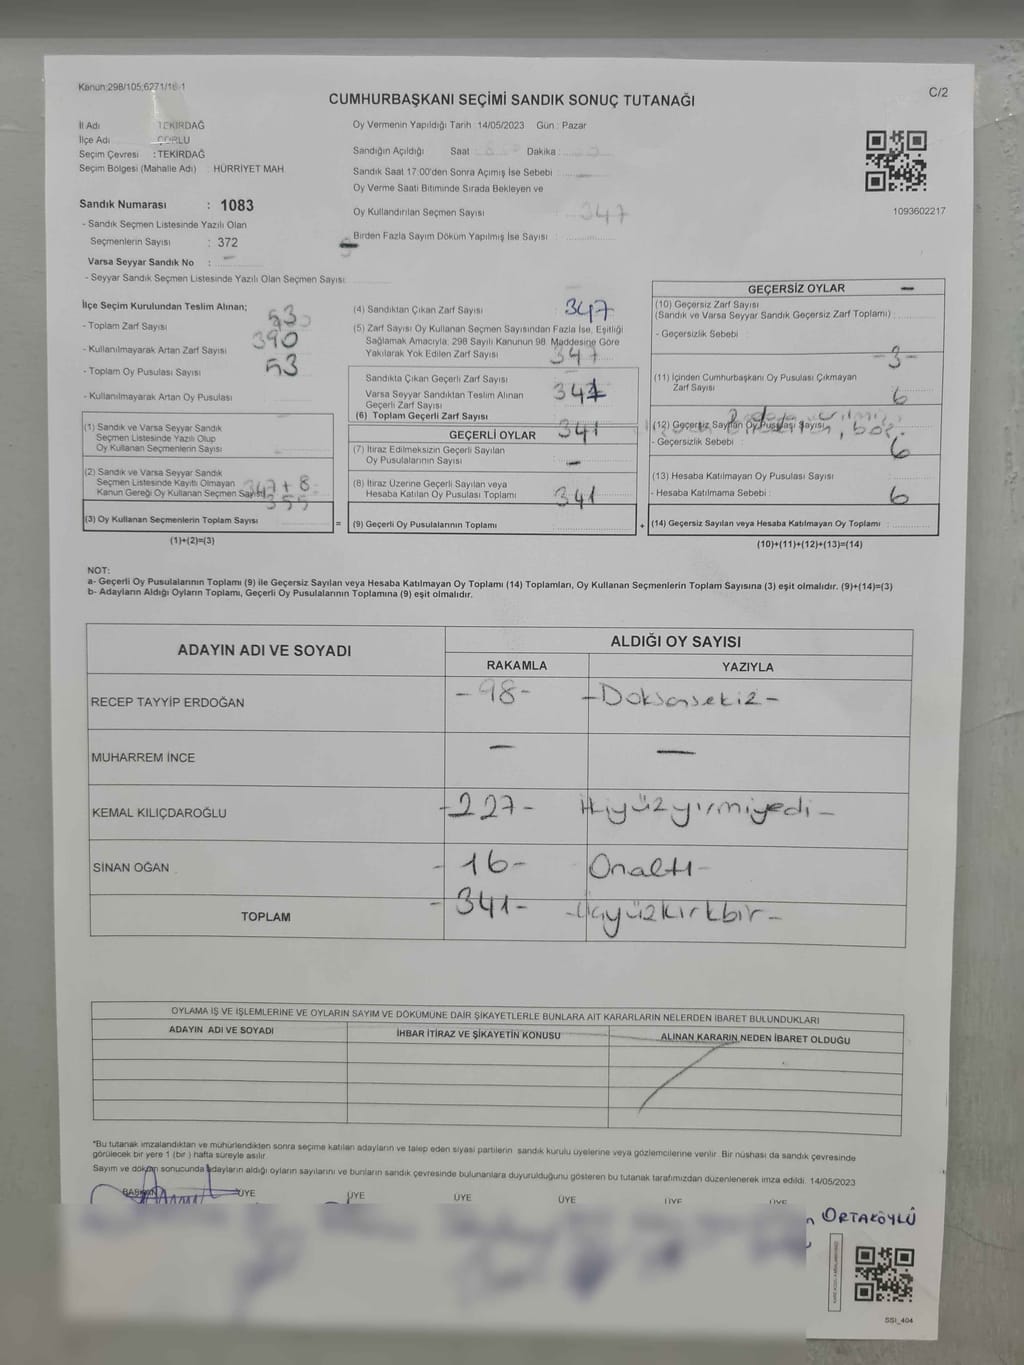 Kanun:298/105;6271/18-1
C/2
CUMHURBAŞKANI SEÇİMİ SANDIK SONUÇ TUTANAĞI
İl Adı TEKİRDAĞ
İlçe Adı ÇORLU
Seçim Çevresi : TEKİRDAĞ
Seçim Bölgesi (Mahalle Adı) : HÜRRİYET MAH
Oy Vermenin Yapıldığı Tarih : 14/05/2023 Gün : Pazar
Sandığın Açıldığı Saat Dakika :
Sandık Saat 17:00'den Sonra Açımış İse Sebebi
Oy Verme Saati Bitiminde Sırada Bekleyen ve
Oy Kullandırılan Seçmen Sayısı 347
Birden Fazla Sayım Döküm Yapılmış İse Sayısı :
1093602217
Sandık Numarası : 1083
- Sandık Seçmen Listesinde Yazılı Olan
Seçmenlerin Sayısı : 372
Varsa Seyyar Sandık No : -
- Seyyar Sandık Seçmen Listesinde Yazılı Olan Seçmen Sayısı:
İlçe Seçim Kurulundan Teslim Alınan;
- Toplam Zarf Sayısı
- Kullanılmayarak Artan Zarf Sayısı 390
- Toplam Oy Pusulası Sayısı 53
- Kullanılmayarak Artan Oy Pusulası
(1) Sandık ve Varsa Seyyar Sandık
Seçmen Listesinde Yazılı Olup
Oy Kullanan Seçmenlerin Sayısı
(2) Sandık ve Varsa Seyyar Sandık
Seçmen Listesinde Kayıtlı Olmayan
Kanun Gereği Oy Kullanan Seçmen Sayısı 347 + 8
355
(3) Oy Kullanan Seçmenlerin Toplam Sayısı
(1)+(2)=(3)
(4) Sandıktan Çıkan Zarf Sayısı : 347
(5) Zarf Sayısı Oy Kullanan Seçmen Sayısından Fazla İse, Eşitliği
Sağlamak Amacıyla; 298 Sayılı Kanunun 98. Maddesine Göre
Yakılarak Yok Edilen Zarf Sayısı 347
Sandıkta Çıkan Geçerli Zarf Sayısı
Varsa Seyyar Sandıktan Teslim Alınan
Geçerli Zarf Sayısı
(6) Toplam Geçerli Zarf Sayısı
GEÇERLİ OYLAR 341
(7) İtiraz Edilmeksizin Geçerli Sayılan
Oy Pusulalarının Sayısı -
(8) İtiraz Üzerine Geçerli Sayılan veya
Hesaba Katılan Oy Pusulası Toplamı 341
= (9) Geçerli Oy Pusulalarının Toplamı
GEÇERSİZ OYLAR -
(10) Geçersiz Zarf Sayısı
(Sandık ve Varsa Seyyar Sandık Geçersiz Zarf Toplamı)
- Geçersizlik Sebebi :
-3-
(11) İçinden Cumhurbaşkanı Oy Pusulası Çıkmayan
Zarf Sayısı 6
(12) Geçersiz Sayılan Oy Pusulası Sayısı
- Geçersizlik Sebebi : 6
(13) Hesaba Katılmayan Oy Pusulası Sayısı
- Hesaba Katılmama Sebebi : 6
+ (14) Geçersiz Sayılan veya Hesaba Katılmayan Oy Toplamı :
(10)+(11)+(12)+(13)=(14)
NOT:
a- Geçerli Oy Pusulalarının Toplamı (9) ile Geçersiz Sayılan veya Hesaba Katılmayan Oy Toplamı (14) Toplamları, Oy Kullanan Seçmenlerin Toplam Sayısına (3) eşit olmalıdır. (9)+(14)=(3)
b- Adayların Aldığı Oyların Toplamı, Geçerli Oy Pusulalarının Toplamına (9) eşit olmalıdır.
ADAYIN ADI VE SOYADI ALDIĞI OY SAYISI
RAKAMLA YAZIYLA
RECEP TAYYİP ERDOĞAN -98- -Doksansekiz-
MUHARREM İNCE - -
KEMAL KILIÇDAROĞLU -227- İkiyüzyirmiyedi-
SİNAN OĞAN -16- Onaltı-
TOPLAM -341- -Üçyüzkırkbir-
OYLAMA İŞ VE İŞLEMLERİNE VE OYLARIN SAYIM VE DÖKÜMÜNE DAİR ŞİKAYETLERLE BUNLARA AİT KARARLARIN NELERDEN İBARET BULUNDUKLARI
ADAYIN ADI VE SOYADI İHBAR İTİRAZ VE ŞİKAYETİN KONUSU ALINAN KARARIN NEDEN İBARET OLDUĞU
*Bu tutanak imzalandıktan ve mühürlendikten sonra seçime katılan adayların ve talep eden siyasi partilerin sandık kurulu üyelerine veya gözlemcilerine verilir. Bir nüshası da sandık çevresinde
görülecek bir yere 1 (bir ) hafta süreyle asılır.
Sayım ve döküm sonucunda adayların aldığı oyların sayılarını ve bunların sandık çevresinde bulunanlara duyurulduğunu gösteren bu tutanak tarafımızdan düzenlenerek imza edildi. 14/05/2023
BAŞKAN ÜYE ÜYE ÜYE ÜYE ÜYE ÜYE
ORTAKÖYLÜ
SSI_404